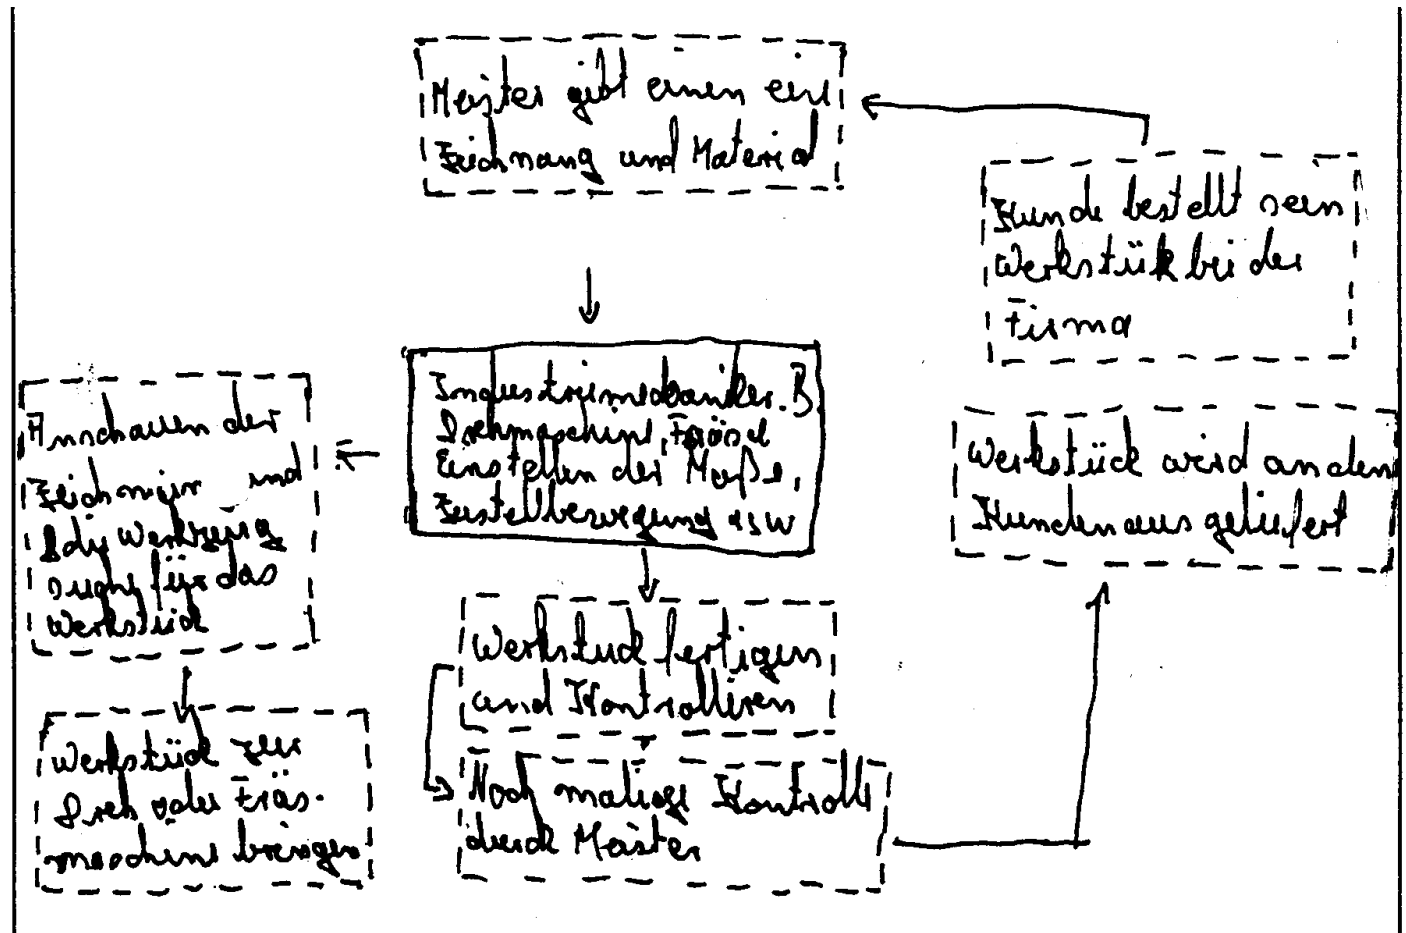 Meister gibt einen ein
Zeichnang und Material
Kunde bestellt sein
Werkstük bei der
Firma
Industriemechaniker. B.
Drehmaschine, Fräse
Einstellen der Maße,
Zustellbewegung usw
Anschauen der
und
die Werkzeug
für das
Werkstück
Werkstück wird an den
Kunden ausgeliefert
Werkstuck fertigen
und Kontrolliren
Werkstück zur
Dreh oder Fräs-
maschine bringen
Noch malige Kontrolle
durch Meister